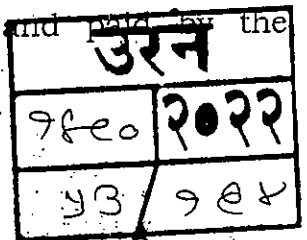 and paid by the
उरन
१४९० २०२२
५३ / १९४